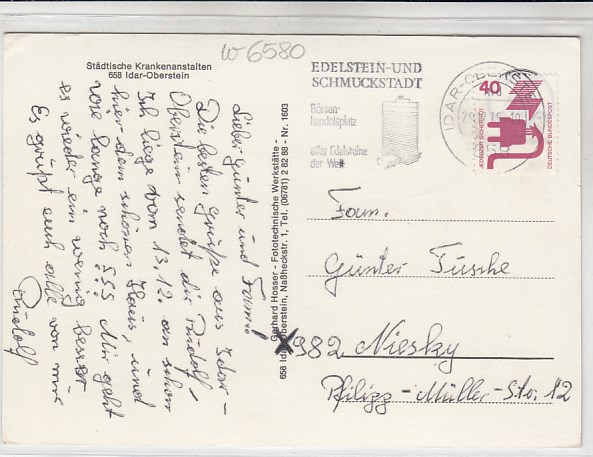 w 6580
Städtische Krankenanstalten
658 Idar-Oberstein
Lieber Günter und Fam.!
Die besten Grüße aus Idar-
Oberstein sendet dir Rudolf,
Ich liege vom 13.12. an schon
hier dem schönen Haus, und
wie lange noch ??? Mir geht
es wieder ein wenig besser
Es grüßt euch alle von mir
Rudolf
Gerhard Hosser - Fototechnische Werkstätte -
658 Idar-Oberstein, Naßheckstr. 1, Tel. (06781) 2 82 88 - Nr. 1603
EDELSTEIN-UND
SCHMUCKSTADT
Börsen-
handelsplatz
aller Edelsteine
der Welt
IDAR-OBER
40
JEDERZEIT SICHERHEIT
DEUTSCHE BUNDESPOST
Fam.
Günter Tusche
X982 Niesky
Philipp-Müller-Str. 12